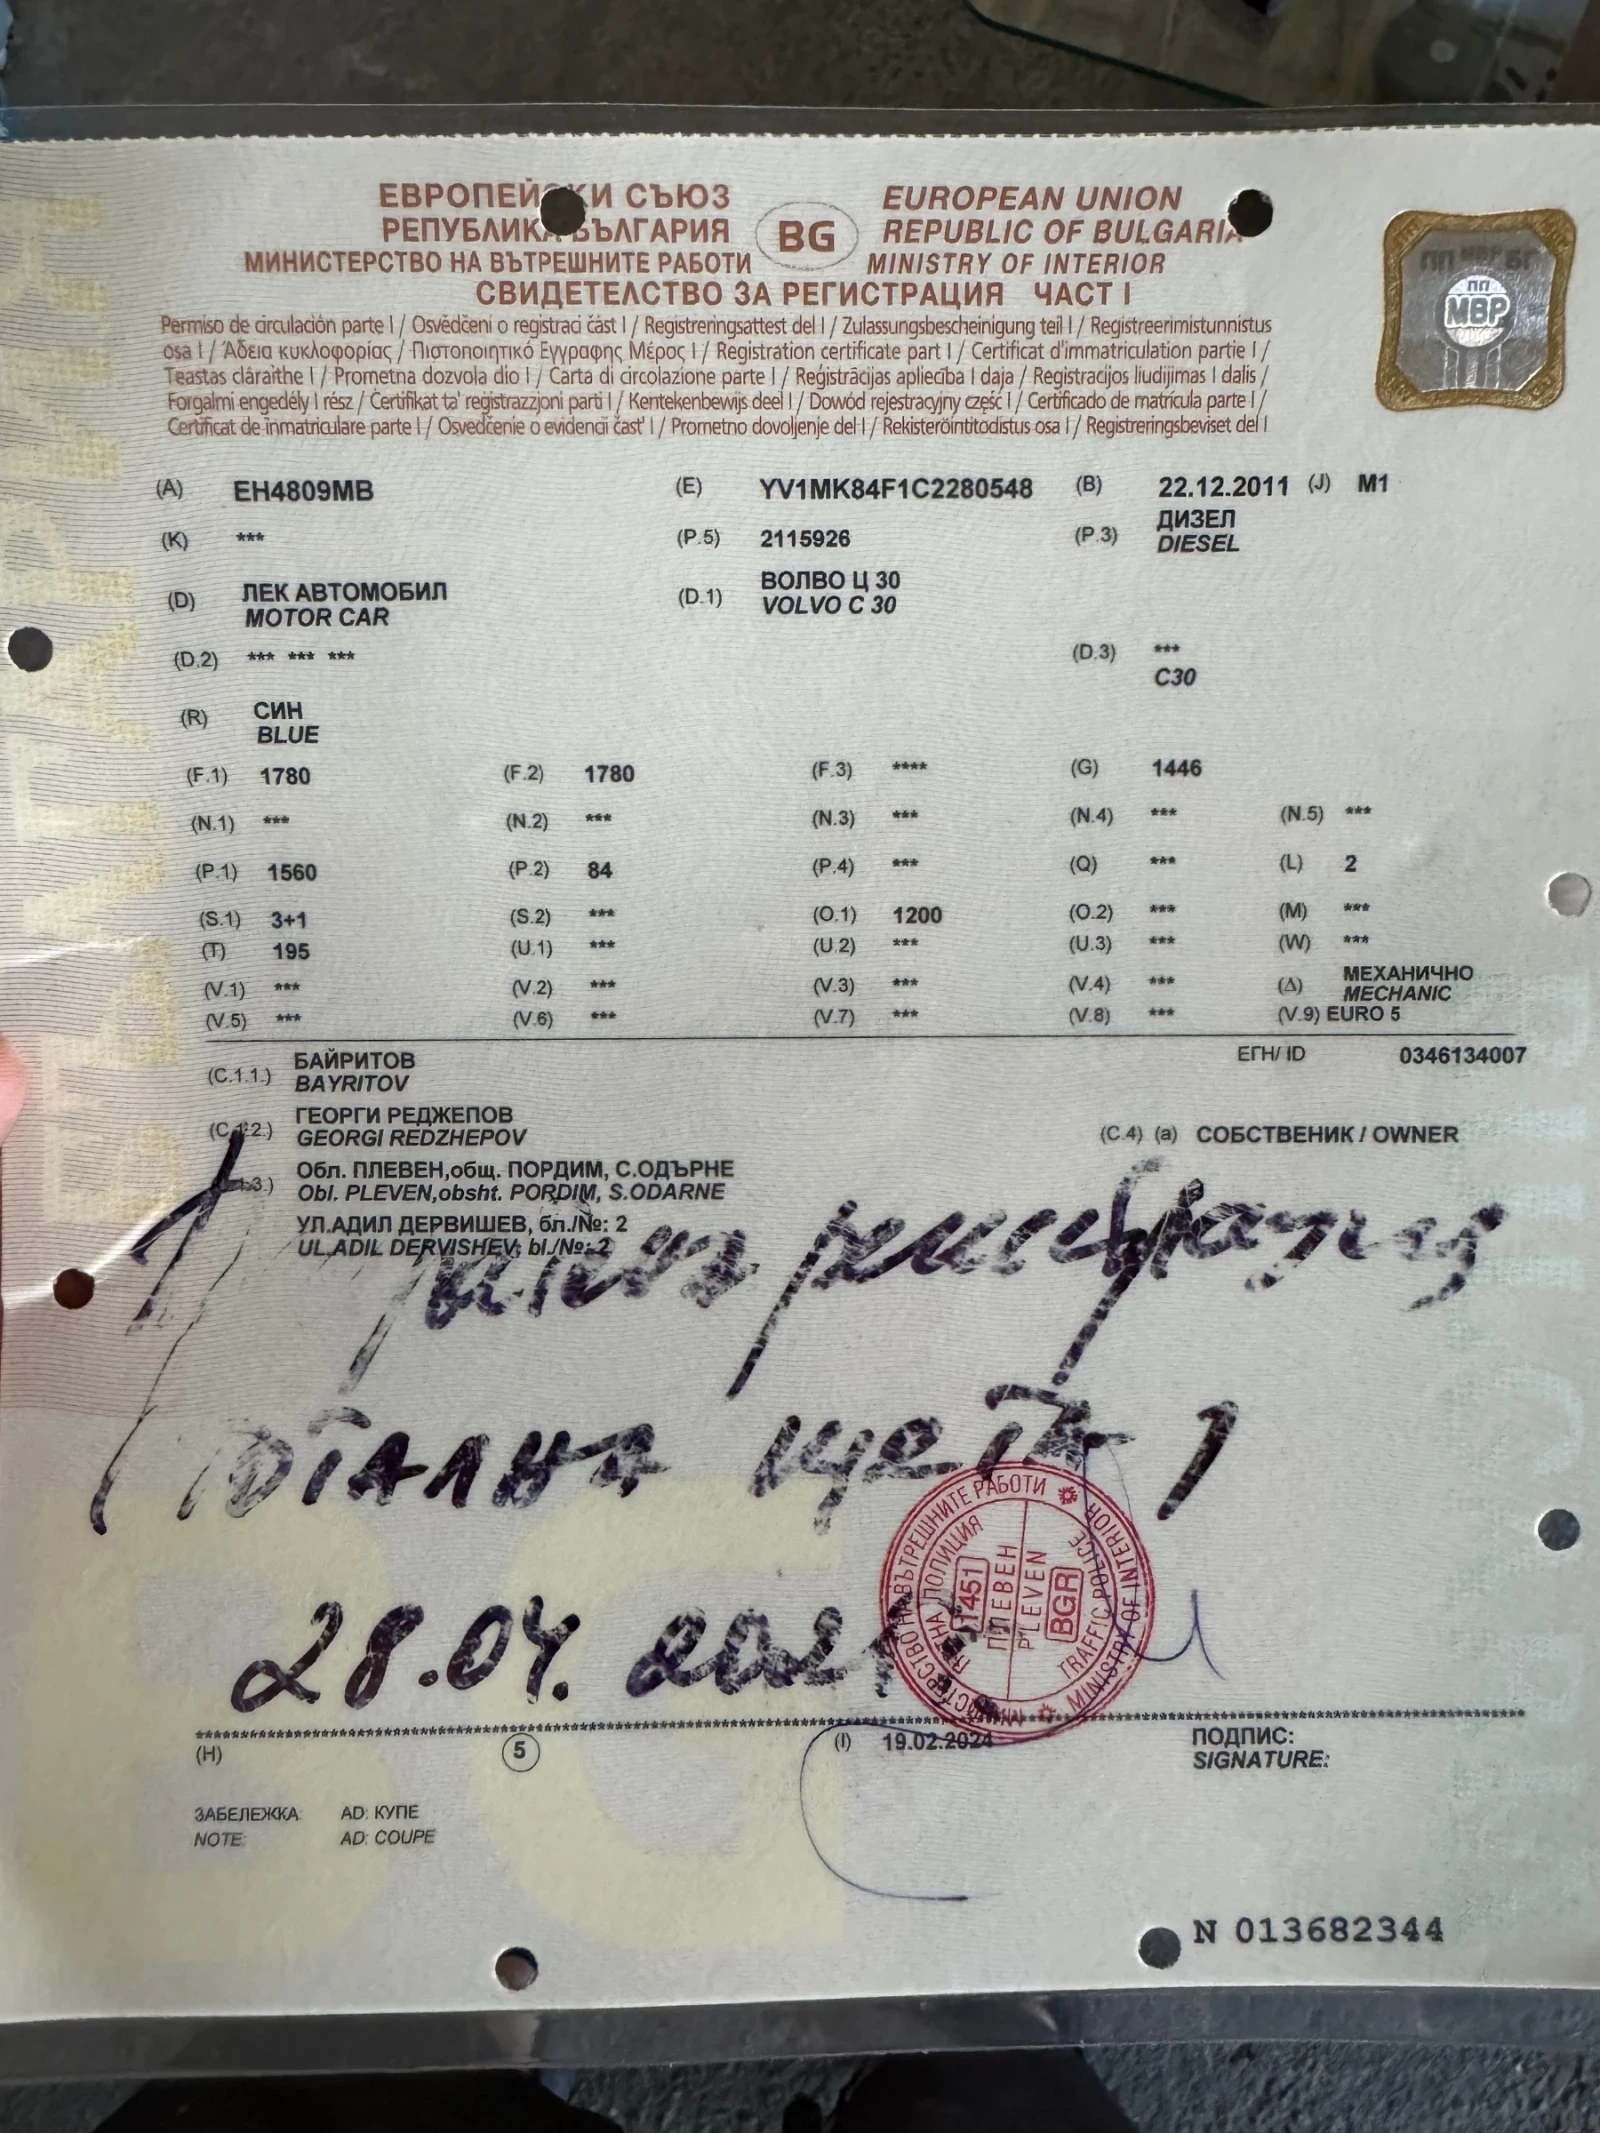 ЕВРОПЕЙСКИ СЪЮЗ
РЕПУБЛИКА БЪЛГАРИЯ
МИНИСТЕРСТВО НА ВЪТРЕШНИТЕ РАБОТИ
BG
EUROPEAN UNION
REPUBLIC OF BULGARIA
MINISTRY OF INTERIOR
СВИДЕТЕЛСТВО ЗА РЕГИСТРАЦИЯ ЧАСТ I
ПП
МВР
Permiso de circulación parte I / Osvědčení o registraci část I / Registreringsattest del I / Zulassungsbescheinigung teil I / Registreerimistunnistus
osa I / Άδεια κυκλοφορίας / Πιστοποιητικό Εγγραφης Μέρος I / Registration certificate part I / Certificat d'immatriculation partie I /
Teastas cláraithe I / Prometna dozvola dio I / Carta di circolazione parte I / Reģistrācijas apliecība I daja / Registracijos liudijimas I dalis /
Forgalmi engedély I rész / Certifikat ta' registrazzjoni parti I / Kentekenbewijs deel I / Dowód rejestracyjny część I / Certificado de matrícula parte I /
Certificat de inmatriculare parte I / Osvedčenie o evidencii časť I / Prometno dovoljenje del I / Rekisteröintitodistus osa I / Registreringsbeviset del I
(A) EH4809MB (E) YV1MK84F1C2280548 (B) 22.12.2011 (J) M1
(K) *** (P.5) 2115926 (P.3) ДИЗЕЛ
DIESEL
(D) ЛЕК АВТОМОБИЛ (D.1) ВОЛВО Ц 30
MOTOR CAR VOLVO C 30
(D.2) *** *** *** (D.3) ***
C30
(R) СИН
BLUE
(F.1) 1780 (F.2) 1780 (F.3) **** (G) 1446
(N.1) *** (N.2) *** (N.3) *** (N.4) *** (N.5) ***
(P.1) 1560 (P.2) 84 (P.4) *** (Q) *** (L) 2
(S.1) 3+1 (S.2) *** (O.1) 1200 (O.2) *** (M) ***
(T) 195 (U.1) *** (U.2) *** (U.3) *** (W) ***
(V.1) *** (V.2) *** (V.3) *** (V.4) *** (Δ) МЕХАНИЧНО
MECHANIC
(V.5) *** (V.6) *** (V.7) *** (V.8) *** (V.9) EURO 5
(C.1.1.) БАЙРИТОВ ЕГН/ ID 0346134007
BAYRITOV
(C.1.2.) ГЕОРГИ РЕДЖЕПОВ
GEORGI REDZHEPOV
(C.4) (a) СОБСТВЕНИК / OWNER
Обл. ПЛЕВЕН,общ. ПОРДИМ, С.ОДЪРНЕ
Obl. PLEVEN,obsht. PORDIM, S.ODARNE
УЛ.АДИЛ ДЕРВИШЕВ, бл./№: 2
UL.ADIL DERVISHEV, bl./№: 2
тотална щета 1
28.04.
МИНИСТЕРСТВО НА ВЪТРЕШНИТЕ РАБОТИ
MINISTRY OF INTERIOR
TRAFFIC POLICE
1451
ПЛЕВЕН
PLEVEN
BGR
(H) 5 (I) 19.02.2024 ПОДПИС:
SIGNATURE:
ЗАБЕЛЕЖКА: AD: КУПЕ
NOTE: AD: COUPE
N 013682344